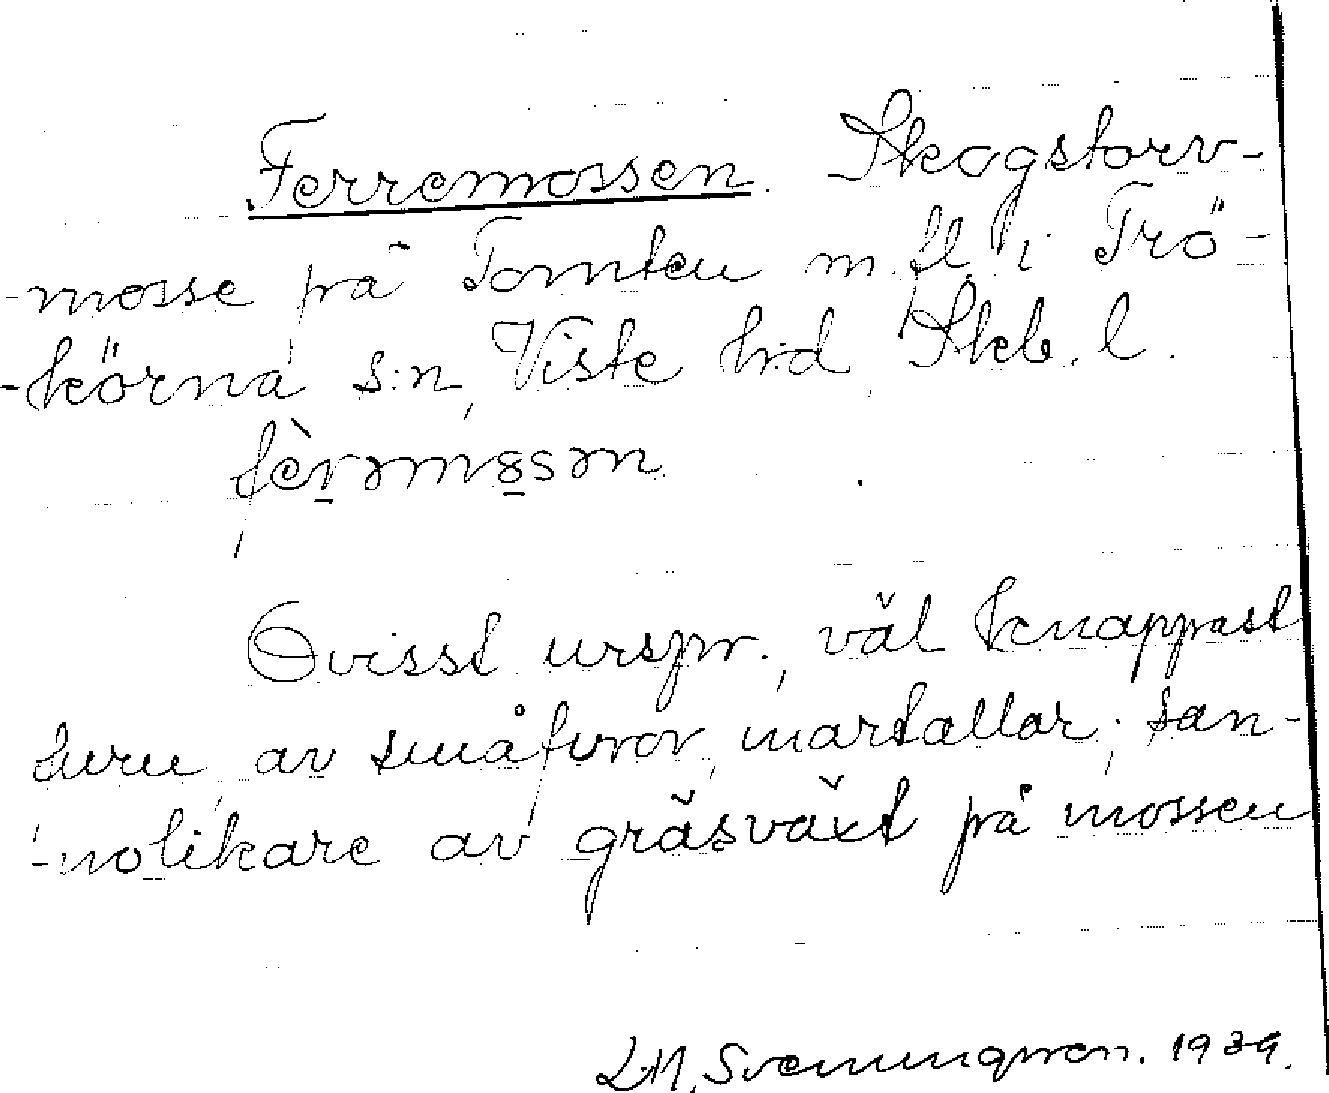 Ferremossen. Skogstorv-
-mosse på Tomten m.fl. i Trö-
-körna s:n, Viste hd, Skb. l.
Ovisst urspr., väl knappast
furu, av småfuror, martallar; san-
-nolikare av gräsväxt på mossen
1939.